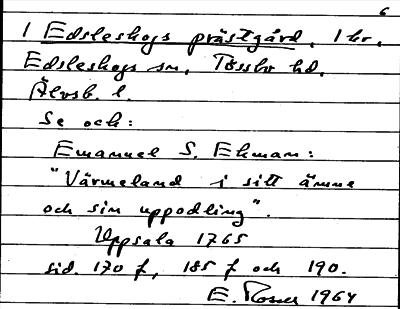 6
1 Edsleskogs prästgård, 1 br.
Edsleskogs sn, Tössbo hd.
Älvsb. l.
Se och:
Emanuel S. Ekman:
"Värmeland i sitt ämne
och sin uppodling".
Uppsala 1765
sid. 170 f, 185 f och 190.
E. 1964